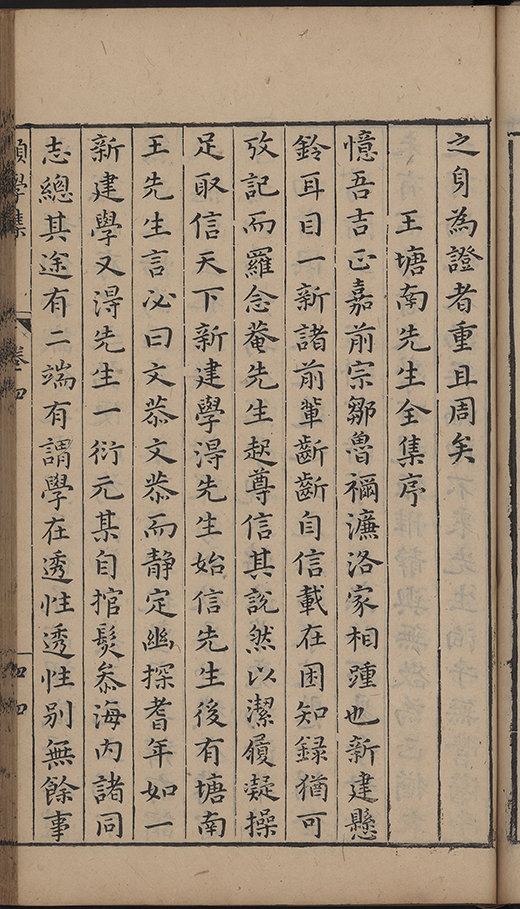 之身為證者重且周矣
王塘南先生全集序
憶吾吉正嘉前宗鄒魯禰濂洛家相踵也新建懸
鈴耳目一新諸前輩齗齗自信載在困知録猶可
攷記而羅念菴先生起尊信其說然以潔履凝操
足取信天下新建學淂先生始信先生後有塘南
王先生言必曰文恭文恭而静定幽探耆年如一
新建學又淂先生一衍元某自捾髮叅海内諸同
志總其途有二端有謂學在透性透性別無餘事
願學集 卷四 四四